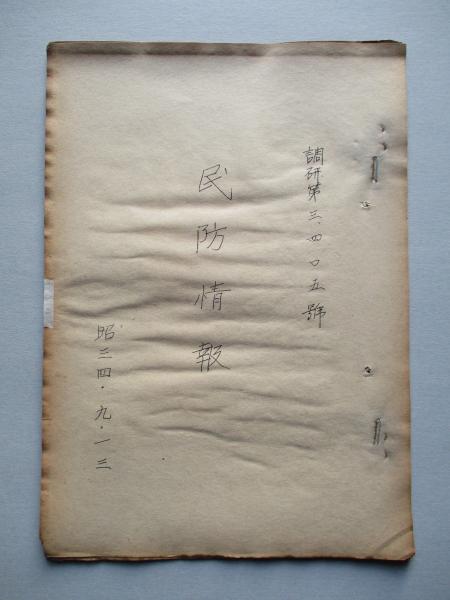 調研第三、四〇五號
民防情報
昭三四・九・一三